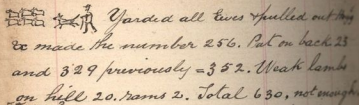 Yarded all Ewes & pulled out
& made the number 256. Put on back 23
and 329 previously = 352. Weak lambs
on hill 20. rams 2. Total 630, not enough